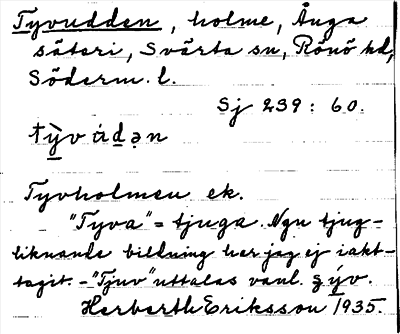 Tyvudden, holme, Ånga
säteri, Svärta sn, Rönö hd,
Söderm. l.
Sj 239: 60.
Tyvholmen ek.
"Tyva" = tjuga. Ngn tjug-
liknande bildning har jag ej iakt-
tagit. - "Tjuv" uttalas vanl.
Herberth Eriksson 1935.